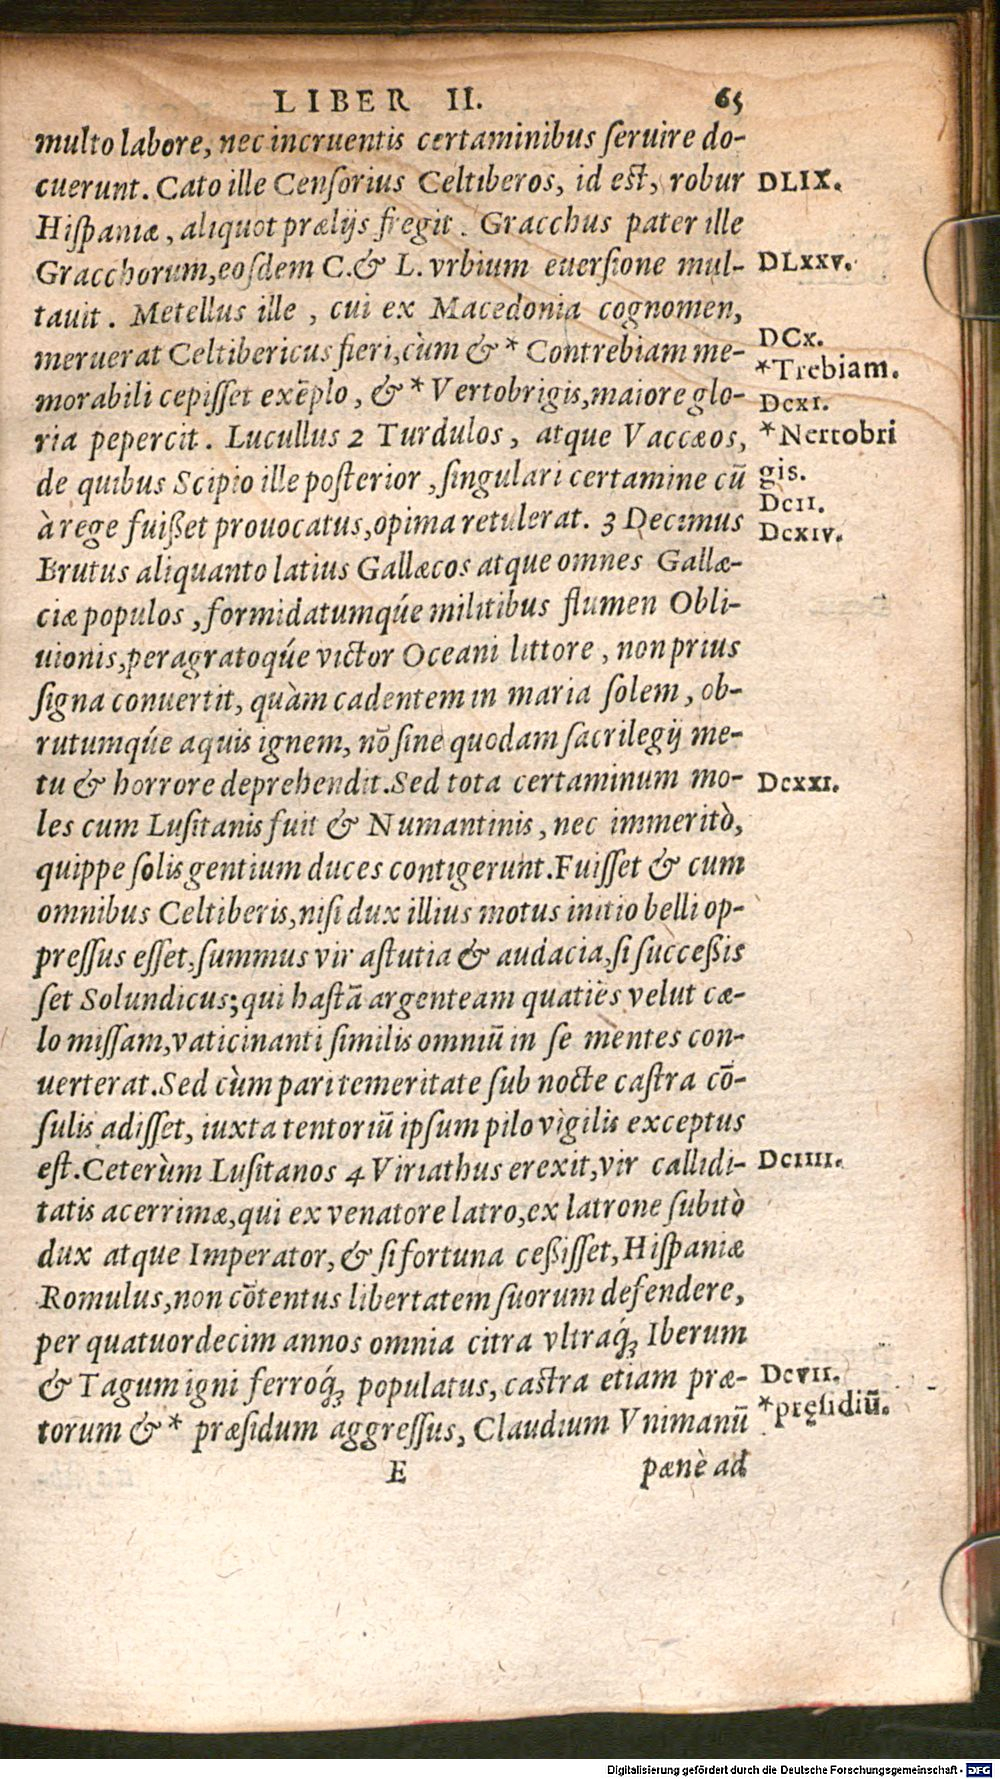 LIBER II. 65
multo labore, nec incruentis certaminibus ſeruire do-
cuerunt. Cato ille Cenſorius Celtiberos, id eſt, robur DLIX.
Hiſpaniæ, aliquot prælijs fregit. Gracchus pater ille
Gracchorum, eoſdem C. & L. vrbium euerſione mul- DLxxv.
tauit. Metellus ille, cui ex Macedonia cognomen,
meruerat Celtibericus fieri, cùm & * Contrebiam me- DCx.
*Trebiam.
morabili cepiſſet exẽplo, & * Vertobrigis, maiore glo- Dcxi.
ria pepercit. Lucullus 2 Turdulos, atque Vaccæos, *Nertobri
de quibus Scipio ille poſterior, ſingulari certamine cũ gis.
à rege fuißet prouocatus, opima retulerat. 3 Decimus Dcii.
Dcxiv.
Brutus aliquanto latius Gallæcos atque omnes Gallæ-
ciæ populos, formidatumq́ue militibus flumen Obli-
uionis, peragratoq́ue victor Oceani littore, non prius
ſigna conuertit, quàm cadentem in maria ſolem, ob-
rutumq́ue aquis ignem, nõ ſine quodam ſacrilegij me-
tu & horrore deprehendit. Sed tota certaminum mo- Dcxxi.
les cum Luſitanis fuit & Numantinis, nec immeritò,
quippe ſolis gentium duces contigerunt. Fuiſſet & cum
omnibus Celtiberis, niſi dux illius motus initio belli op-
preſſus eſſet, ſummus vir aſtutia & audacia, ſi ſucceßis
ſet Solundicus; qui haſtã argenteam quatiẽs velut cæ-
lo miſſam, vaticinanti ſimilis omniũ in ſe mentes con-
uerterat. Sed cùm pari temeritate ſub nocte caſtra cõ-
ſulis adiſſet, iuxta tentoriũ ipſum pilo vigilis exceptus
eſt. Ceterùm Luſitanos 4 Viriathus erexit, vir callidi- Dciiii.
tatis acerrimæ, qui ex venatore latro, ex latrone ſubitò
dux atque Imperator, & ſi fortuna ceßiſſet, Hiſpaniæ
Romulus, non cõtentus libertatem ſuorum defendere,
per quatuordecim annos omnia citra vltraq́ꝫ Iberum
& Tagum igni ferroq́ꝫ populatus, caſtra etiam præ- Dcvii.
torum & * præſidum aggreſſus, Claudium Vnimanũ *pręſidiũ.
E pænè ad
Digitalisierung gefördert durch die Deutsche Forschungsgemeinschaft - DFG